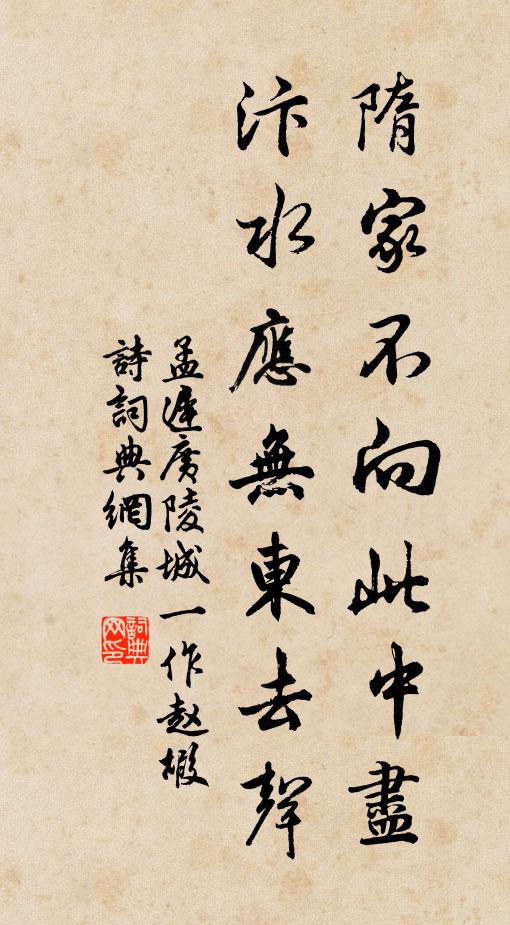 隋家不向此中盡
汴水應無東去聲
孟遲廣陵城一作趙嘏
詩詞典網集
詞典網印